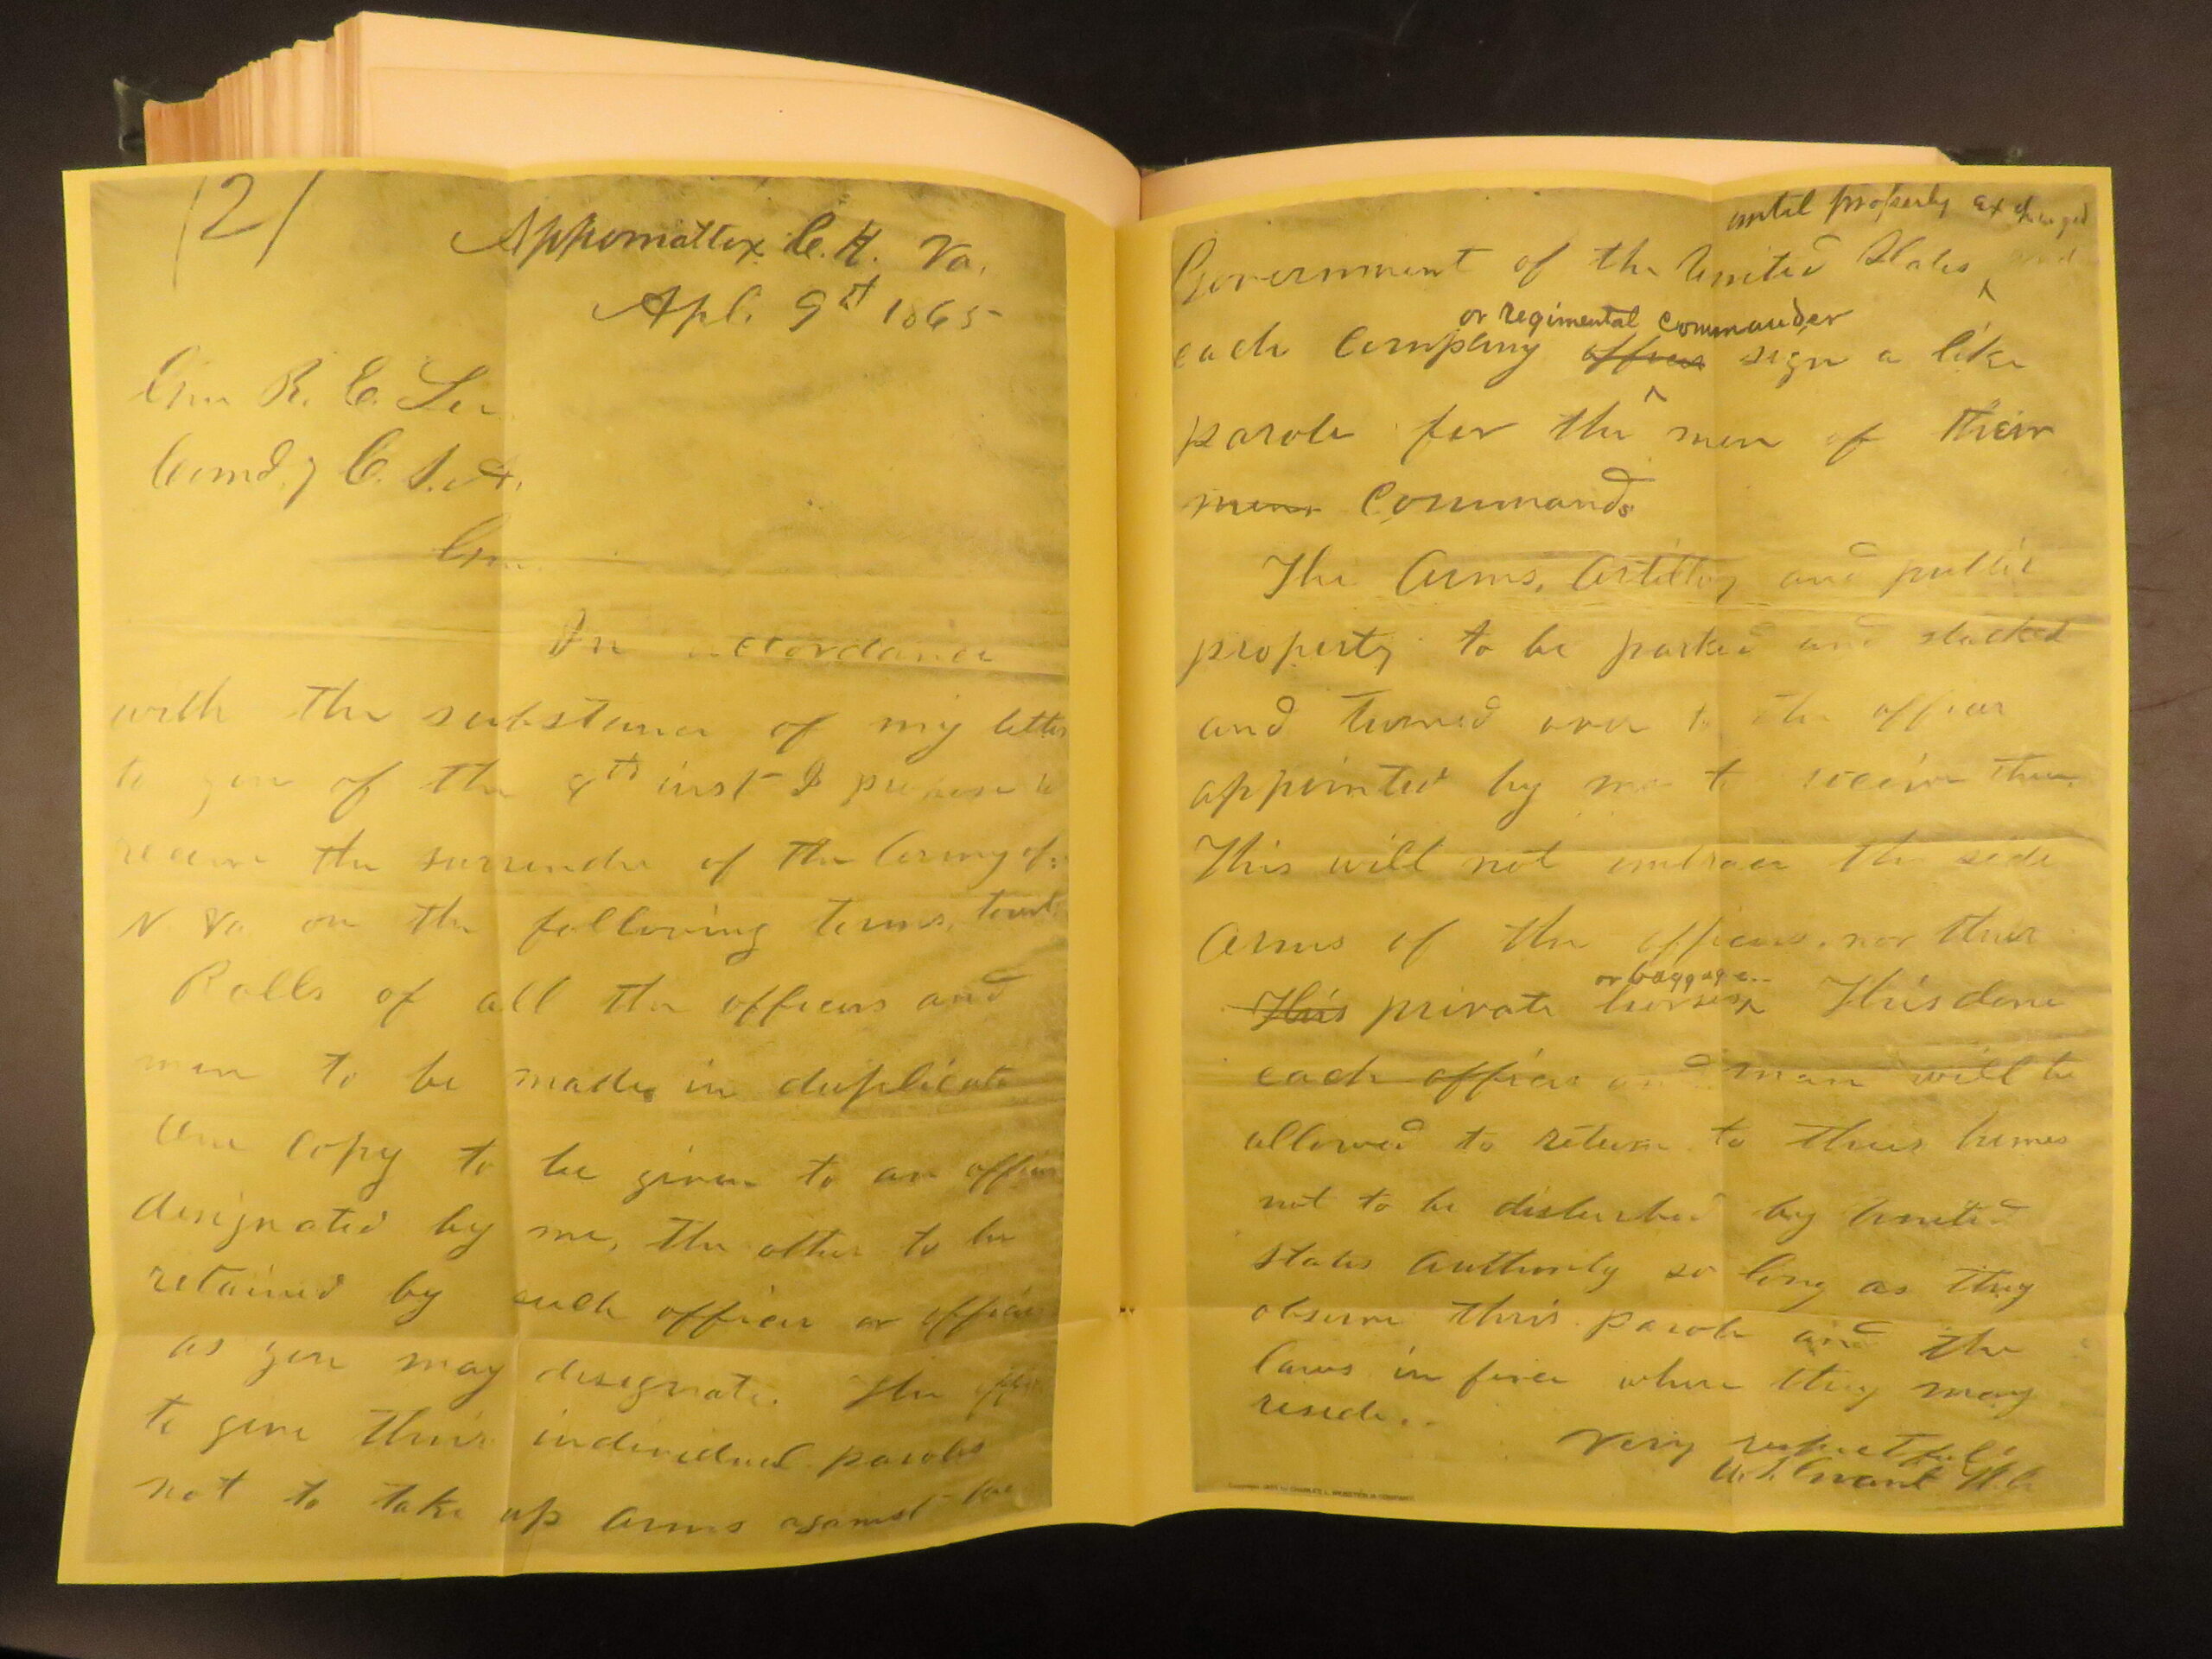 /2/
Appomattox C. H. Va.
Apl. 9th 1865
Gen R. E. Lee
Comd,g C. S. A.
Gen.
In accordance
with the substance of my letter
to you of the 8th inst I propose to
receive the surrender of the Army of
N Va on the following terms, towit
Rolls of all the officers and
men to be made in duplicate
One copy to be given to an officer
designated by me, the other to be
retained by such officer or officers
as you may designate. The officers
to give their individual paroles
not to take up arms against the
until properly exchanged
Government of the United States and
or regimental commander
each Company officer sign a like
parole for the men of their
men Commands
The Arms, Artillery and public
property to be parked and stacked
and turned over to the officer
appointed by me to receive them.
This will not embrace the side
Arms of the officers, nor their
or baggage
This private horses This done
each officer and man will be
allowed to return to their homes
not to be disturbed by United
States Authority so long as they
observe their parole and the
laws in force where they may
reside.
Very respectfully
U. S. Grant Lt. Gn